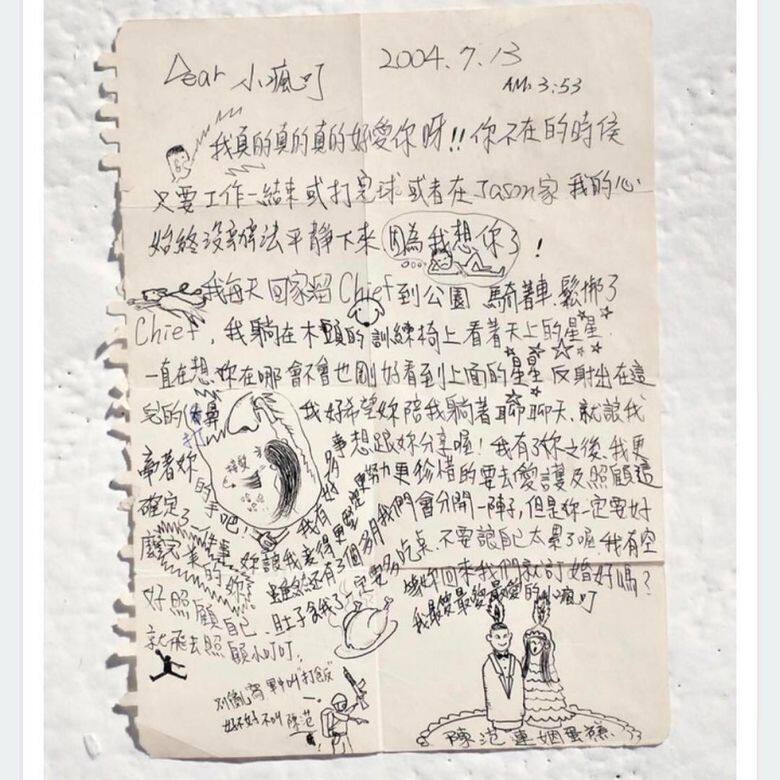 Dear 小瘋叮 2004.7.13
AM: 3:53
我真的真的真的好愛你呀!!你不在的時候
只要工作一結束或打完球或者在Jason家我的心
始終沒辦法平靜下來因為我想你了!
我每天回家溜Chief到公園騎著車鬆綁了
Chief,我躺在木頭的訓練椅上看著天上的星星.
一直在想妳在哪會不會也剛好看到上面的星星反射出在這
兒的 我好希望妳陪我躺著聊聊天.就讓我
牽著妳的手吧!我有好多事想跟妳分享喔!我有了你之後.我更
確定了一件事妳讓我變得更 更努力更珍惜的要去愛護及照顧這
麼完美的妳.雖然還有3個多月我們會分開一陣子,但是妳一定要好
好照顧自己.肚子餓了一定要多吃點.不要讓自己太累了喔.我有空
就飛去照顧小叮叮. 妳回來我們就訂婚好嗎?
我最愛最愛最愛的小瘋叮
叫"打飯"
好不好不叫陳范!
陳范連姻蛋糕